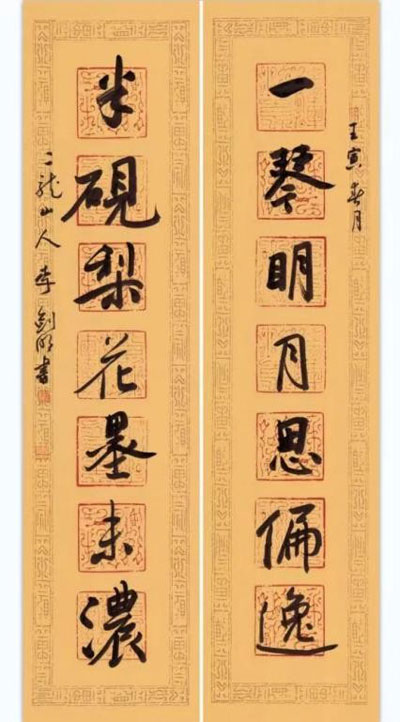 壬寅春月
一琴明月思偏逸
半砚梨花墨未濃
二龍山人李剑明書